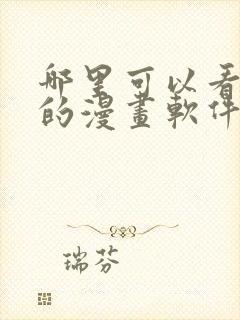 哪里可以看
的漫畫軟件
瑞芬